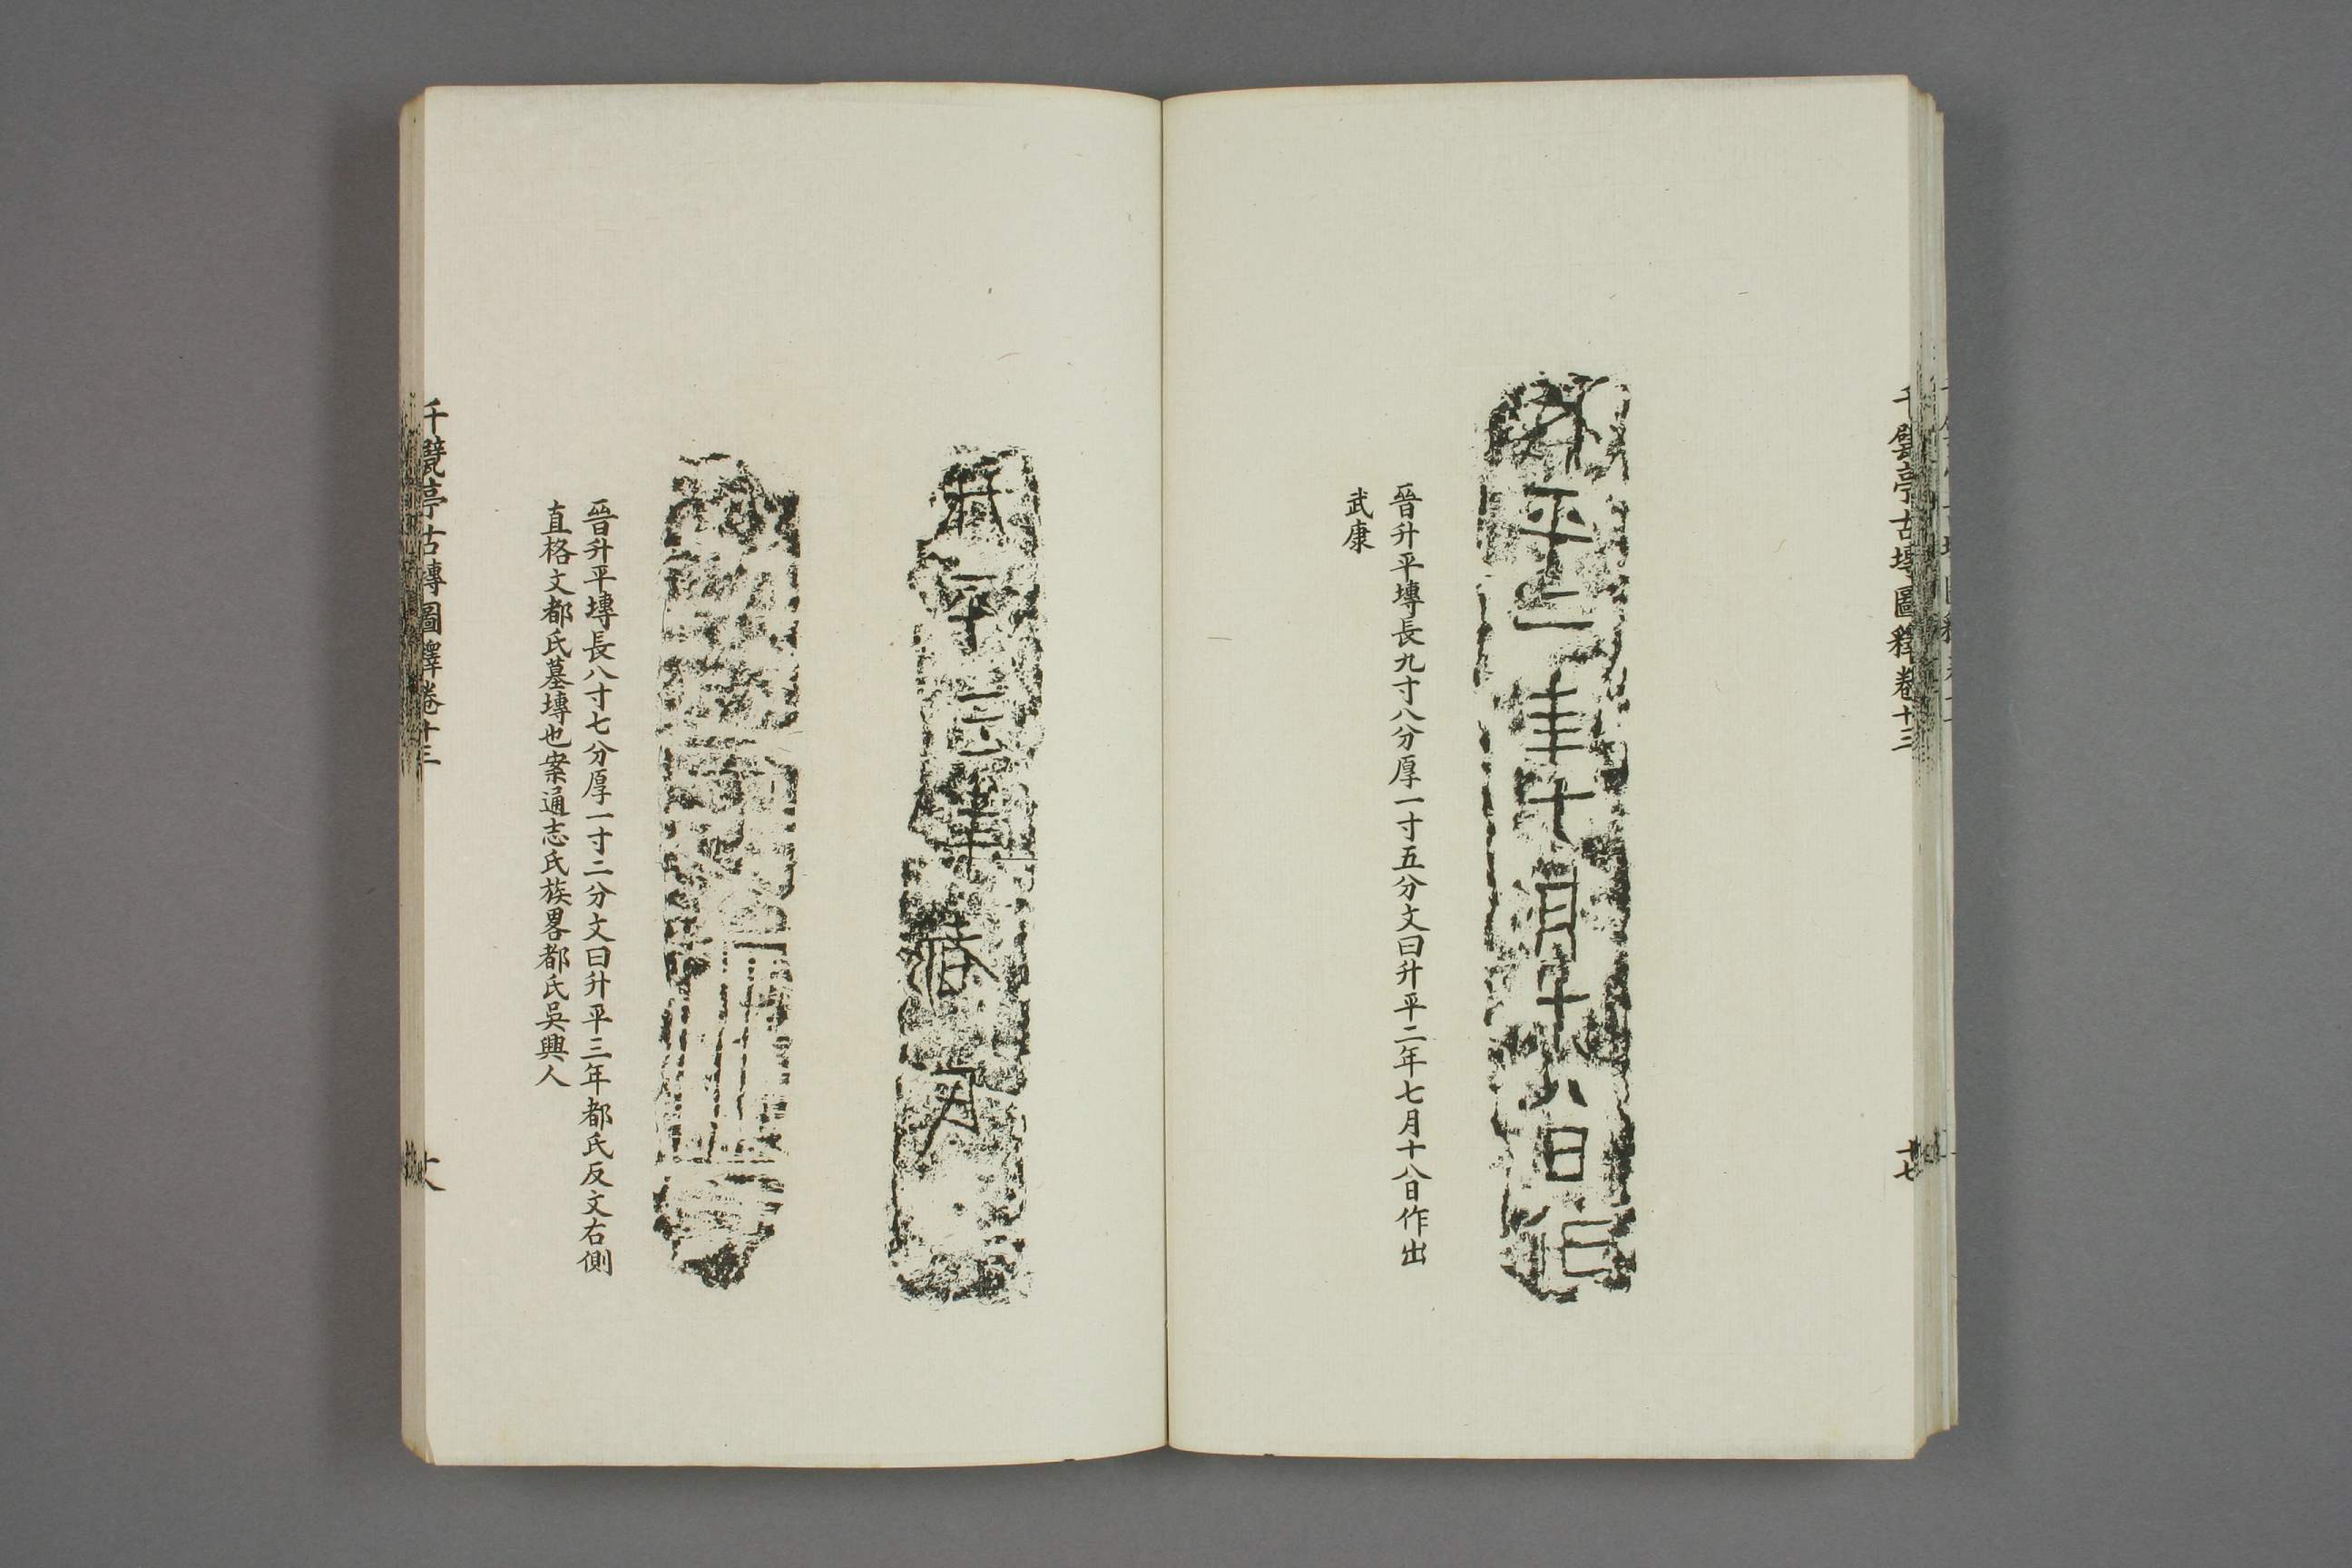 千甓亭古塼圖釋卷十三
十七
平二年十月十八日
晉升平塼長九寸八分厚一寸五分文曰升平二年七月十八日作出
武康
升平三年
晉升平塼長八寸七分厚一寸二分文曰升平三年都氏反文右側
直格文都氏墓塼也案通志氏族畧都氏吳興人
千甓亭古塼圖釋卷十三
十八